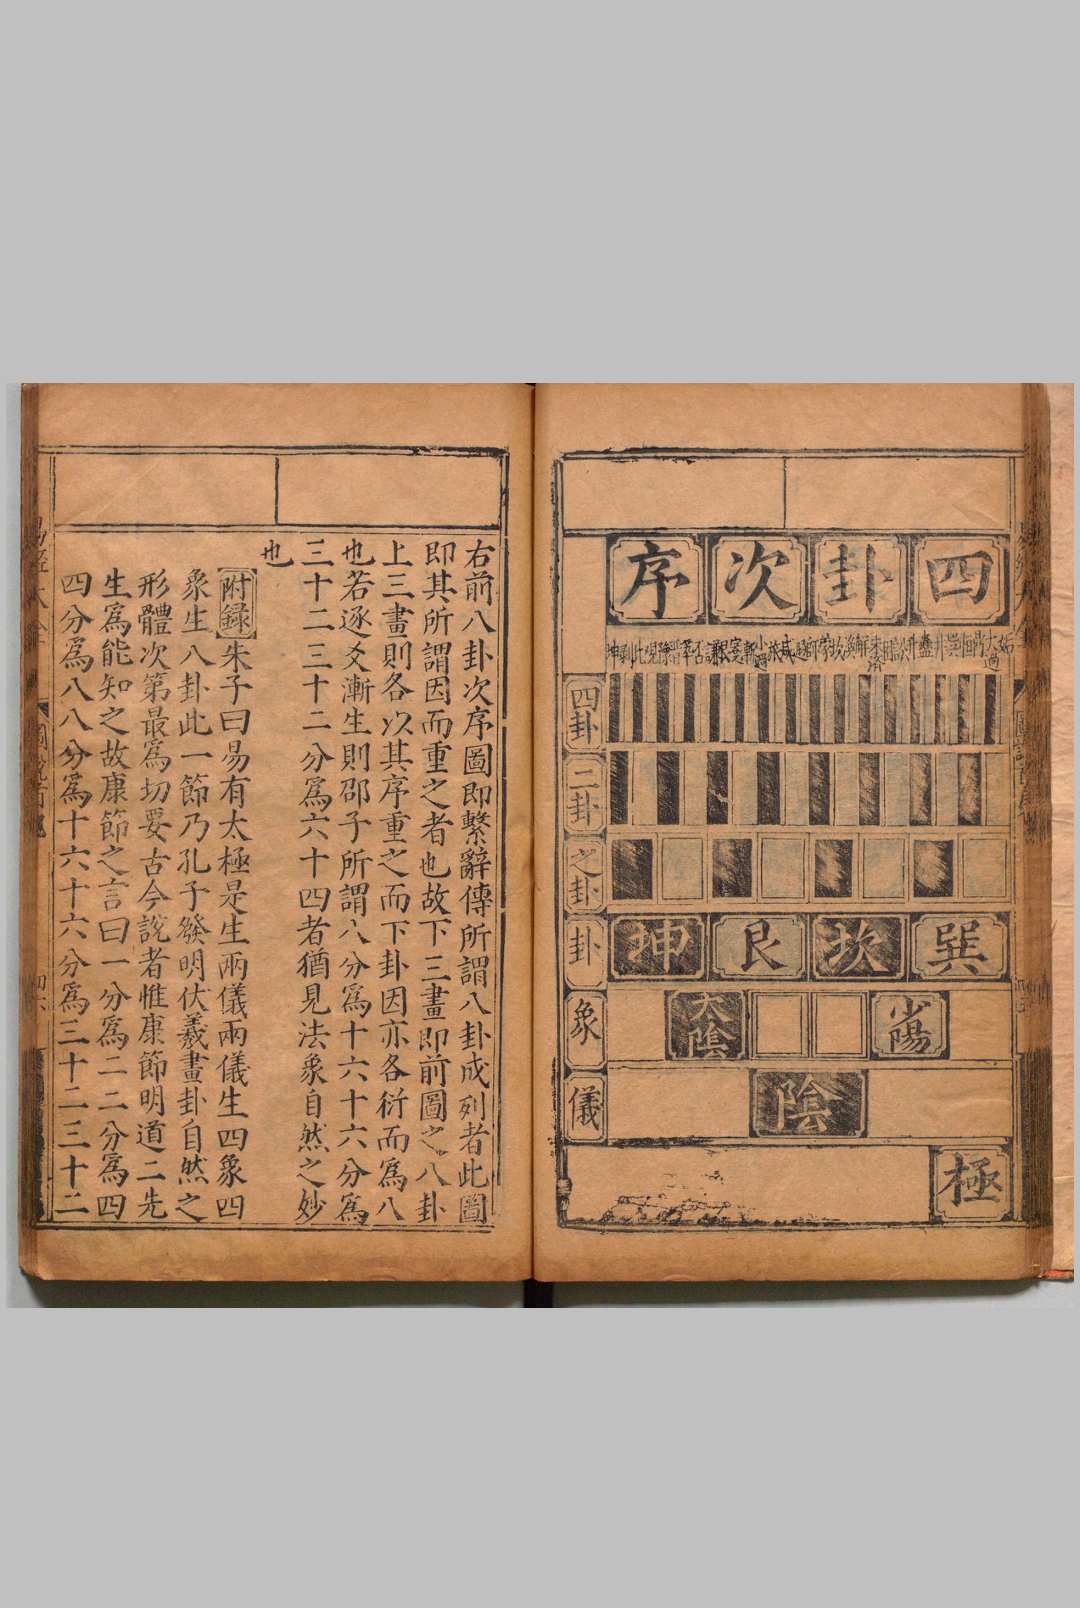 四卦次序
姤大過鼎恒巽井蠱升訟困未濟解渙坎蒙師遯咸旅小過漸蹇艮謙否萃晉豫觀比剝坤
四卦
二卦
之卦
巽坎艮坤
卦
少陽
太陰
象
陰
儀
極
右前八卦次序圖即繫辭傳所謂八卦成列者此圖
即其所謂因而重之者也故下三畫即前圖之八卦
上三畫則各以其序重之而下卦因亦各衍而爲八
也若逐爻漸生則邵子所謂八分爲十六十六分爲
三十二三十二分爲六十四者猶見法象自然之妙
也
附録朱子曰易有太極是生兩儀兩儀生四象四
象生八卦此一節乃孔子發明伏羲畫卦自然之
形體次第最爲切要古今說者惟康節明道二先
生爲能知之故康節之言曰一分爲二二分爲四
四分爲八八分爲十六十六分爲三十二三十二